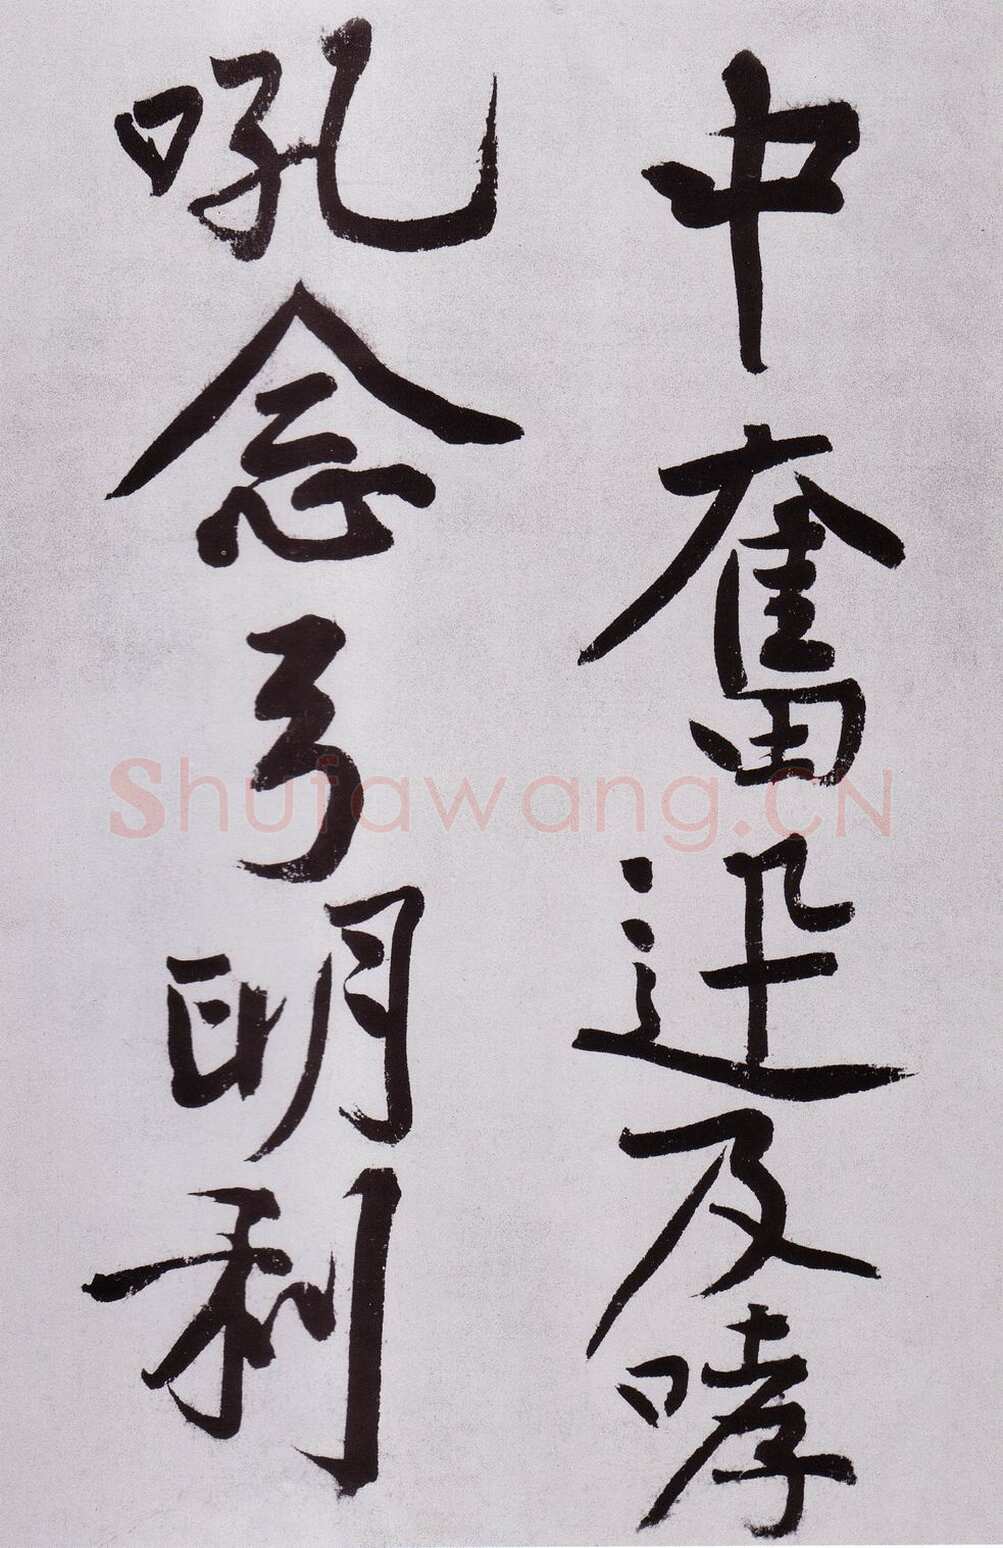 中奮迅及哮
吼念弓明利
Shufawang.CN